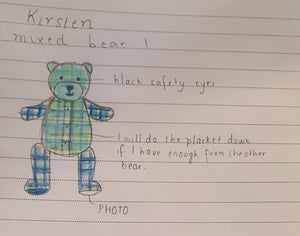 Kirsten
mixed bear 1
black safety eyes
I will do the placket down
if I have enough from the other
bear.
PHOTO